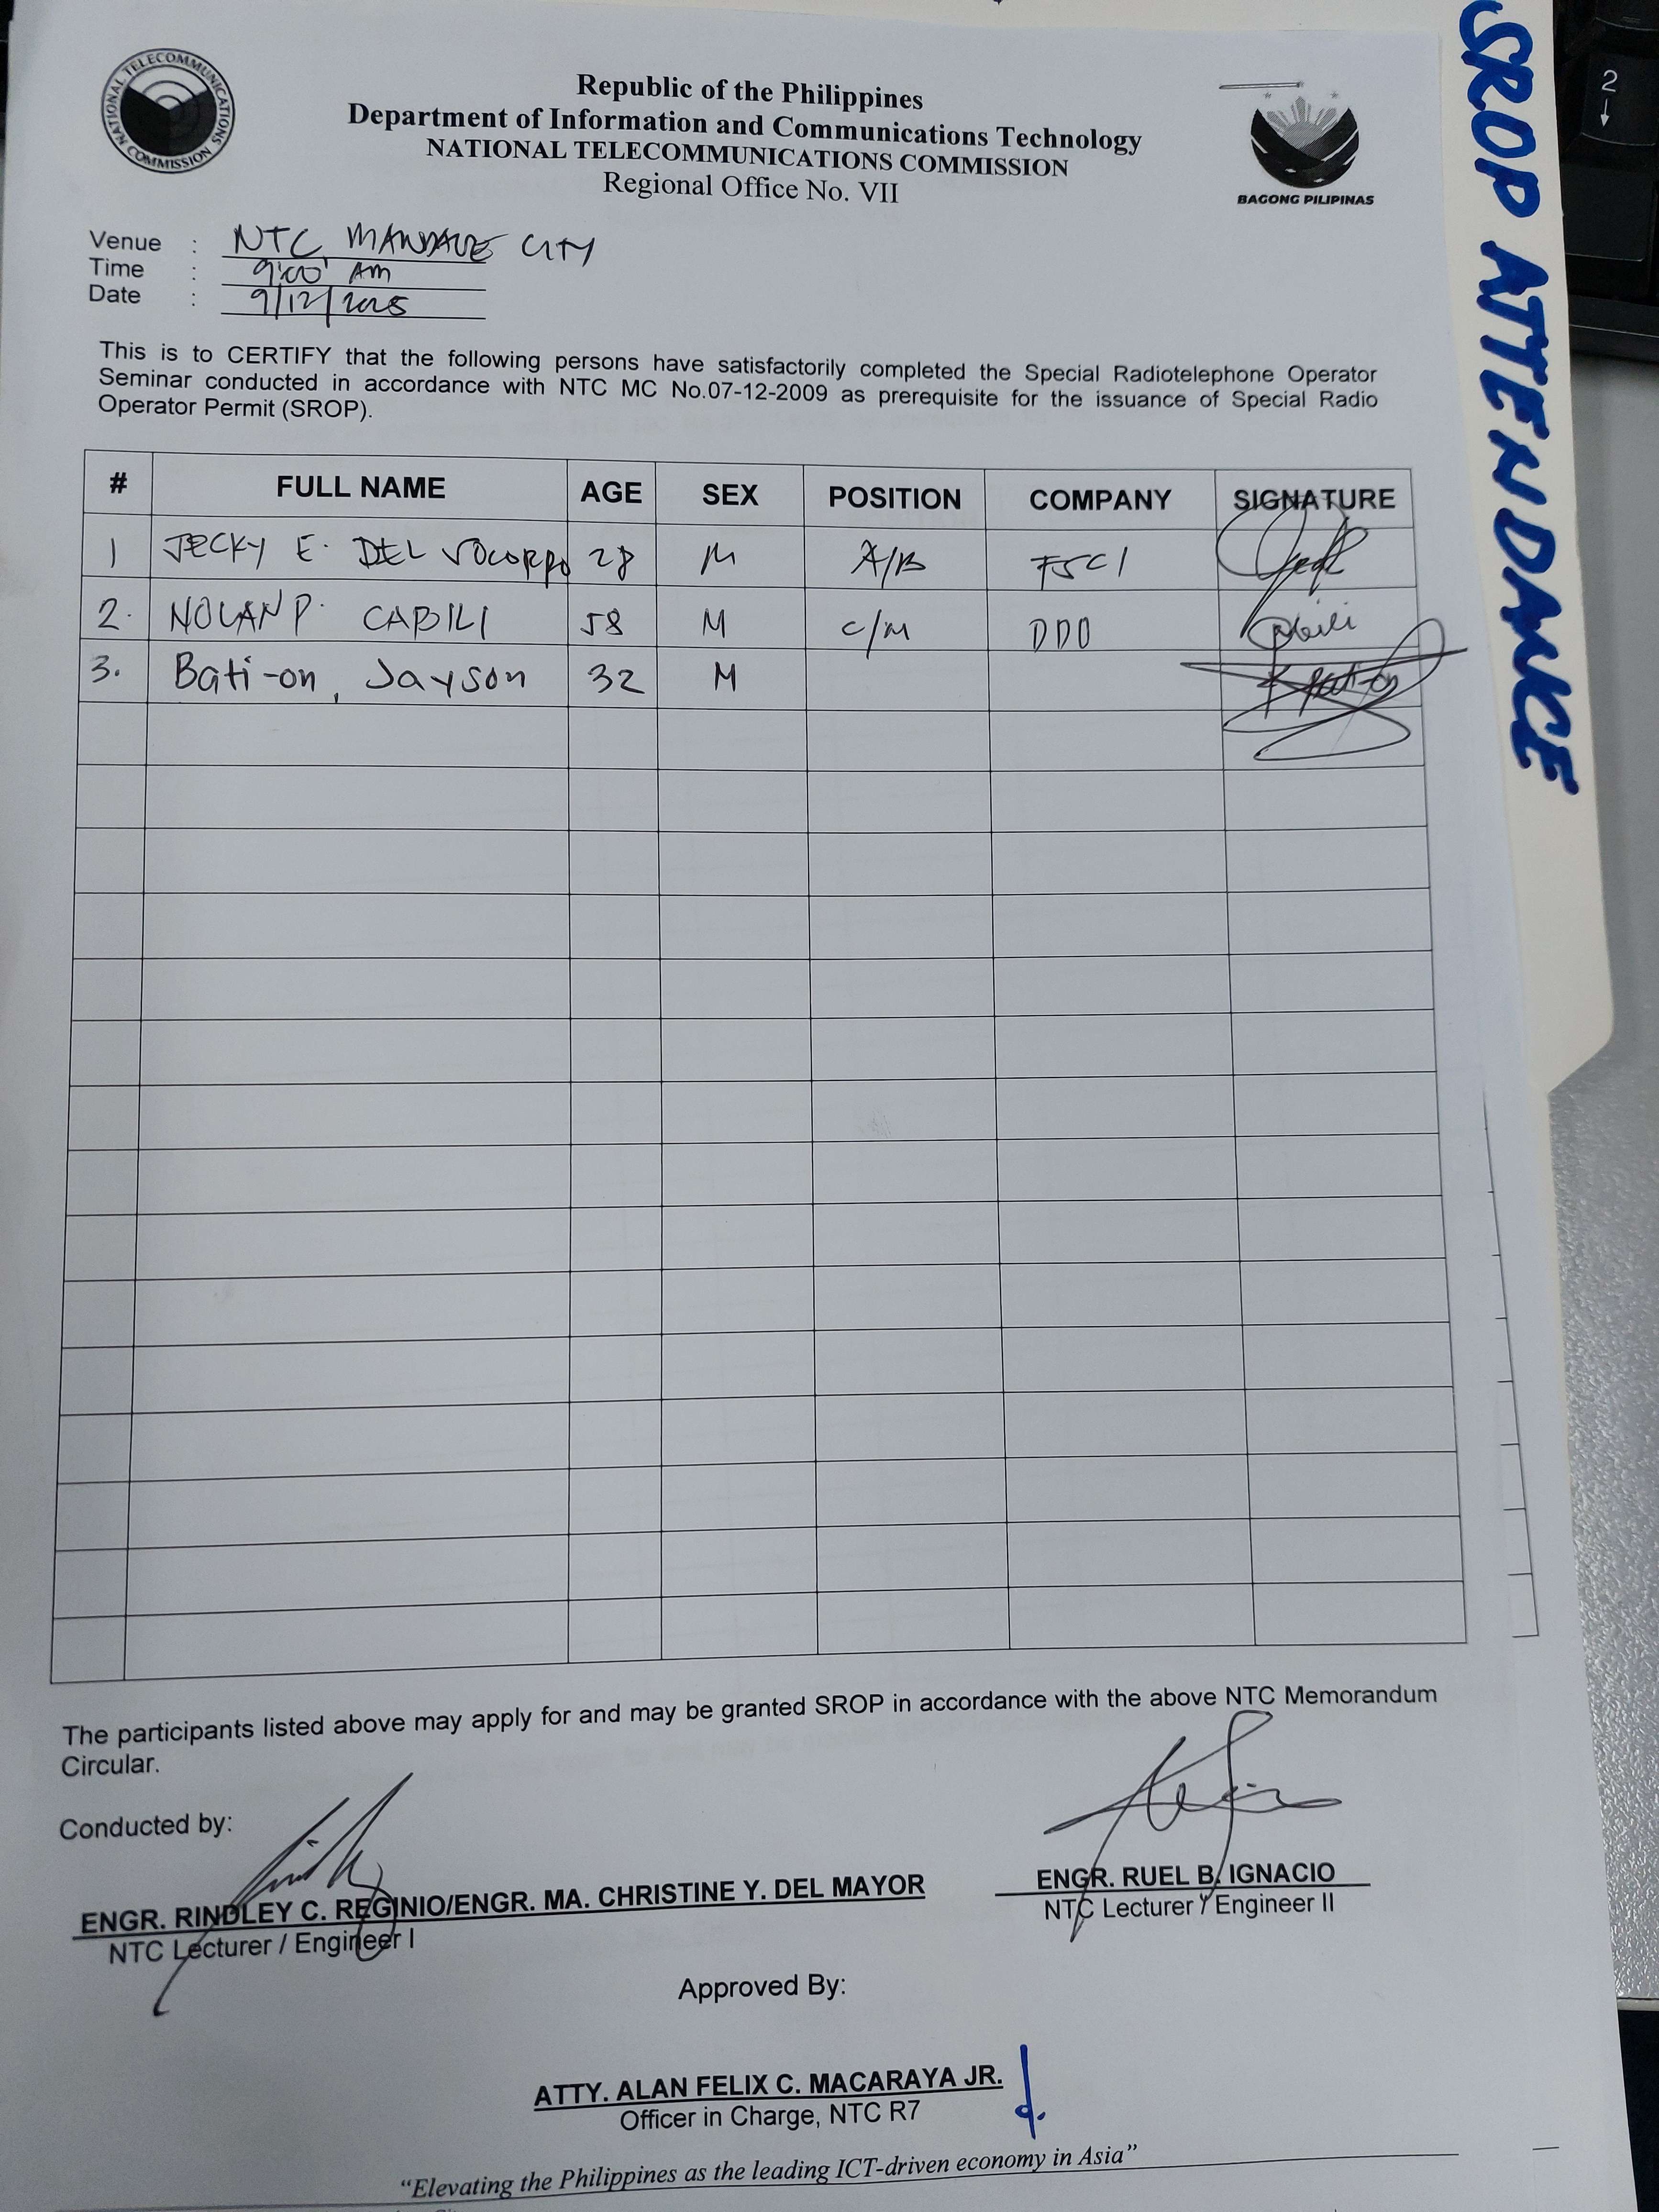 NATIONAL TELECOMMUNICATIONS COMMISSION
Republic of the Philippines
Department of Information and Communications Technology
NATIONAL TELECOMMUNICATIONS COMMISSION
Regional Office No. VII
BAGONG PILIPINAS
SROP ATTENDANCE
2
Venue : NTC MANDAUE CITY
Time : 9:00 AM
Date : 9/12/2025
This is to CERTIFY that the following persons have satisfactorily completed the Special Radiotelephone Operator
Seminar conducted in accordance with NTC MC No.07-12-2009 as prerequisite for the issuance of Special Radio
Operator Permit (SROP).
# FULL NAME AGE SEX POSITION COMPANY SIGNATURE
1 JECKY E. DEL SOCORRO 28 M A/B FSCI
2. NOLAN P. CABILI 58 M C/M DDO Cabili
3. Bati-on, Jayson 32 M
The participants listed above may apply for and may be granted SROP in accordance with the above NTC Memorandum
Circular.
Conducted by:
ENGR. RINDLEY C. REGINIO/ENGR. MA. CHRISTINE Y. DEL MAYOR
NTC Lecturer / Engineer I
ENGR. RUEL B. IGNACIO
NTC Lecturer / Engineer II
Approved By:
ATTY. ALAN FELIX C. MACARAYA JR.
Officer in Charge, NTC R7
“Elevating the Philippines as the leading ICT-driven economy in Asia”